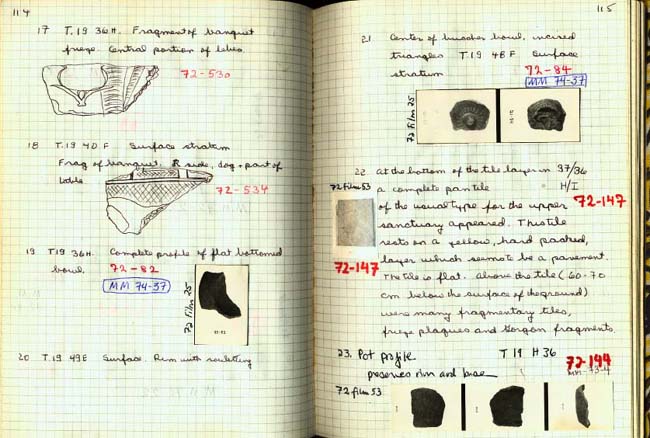 114
17 T.19 36H. Fragment of banquet
frieze. Central portion of lebes.
72-530
18 T.19 40F Surface stratum
Frag of banquet. R side, dog + part of
table.
72-534
19 T19 36H. Complete profile of flat bottomed
bowl. 72-82
MM 74-37
72 Film 25
20 T.19 49E Surface. Rim with rouletting
115
21 Center of bucchero bowl, incised
triangles T.19 48F Surface
stratum 72-84
MM 74-37
72 Film 25
22 At the bottom of the tile layer in 37/36
72 film 53 a complete pantile H/I
of the usual type for the upper 72-147
sanctuary appeared. This tile
rests on a yellow, hard packed,
72-147 layer which seems to be a pavement.
The tile is flat. Above the tile (60-70
cm below the surface of the ground)
were many fragmentary tiles,
frieze plaques and Gorgon fragments.
23. Pot profile T 19 H 36 72-144
preserves rim and base MM-73-4
72 film 53